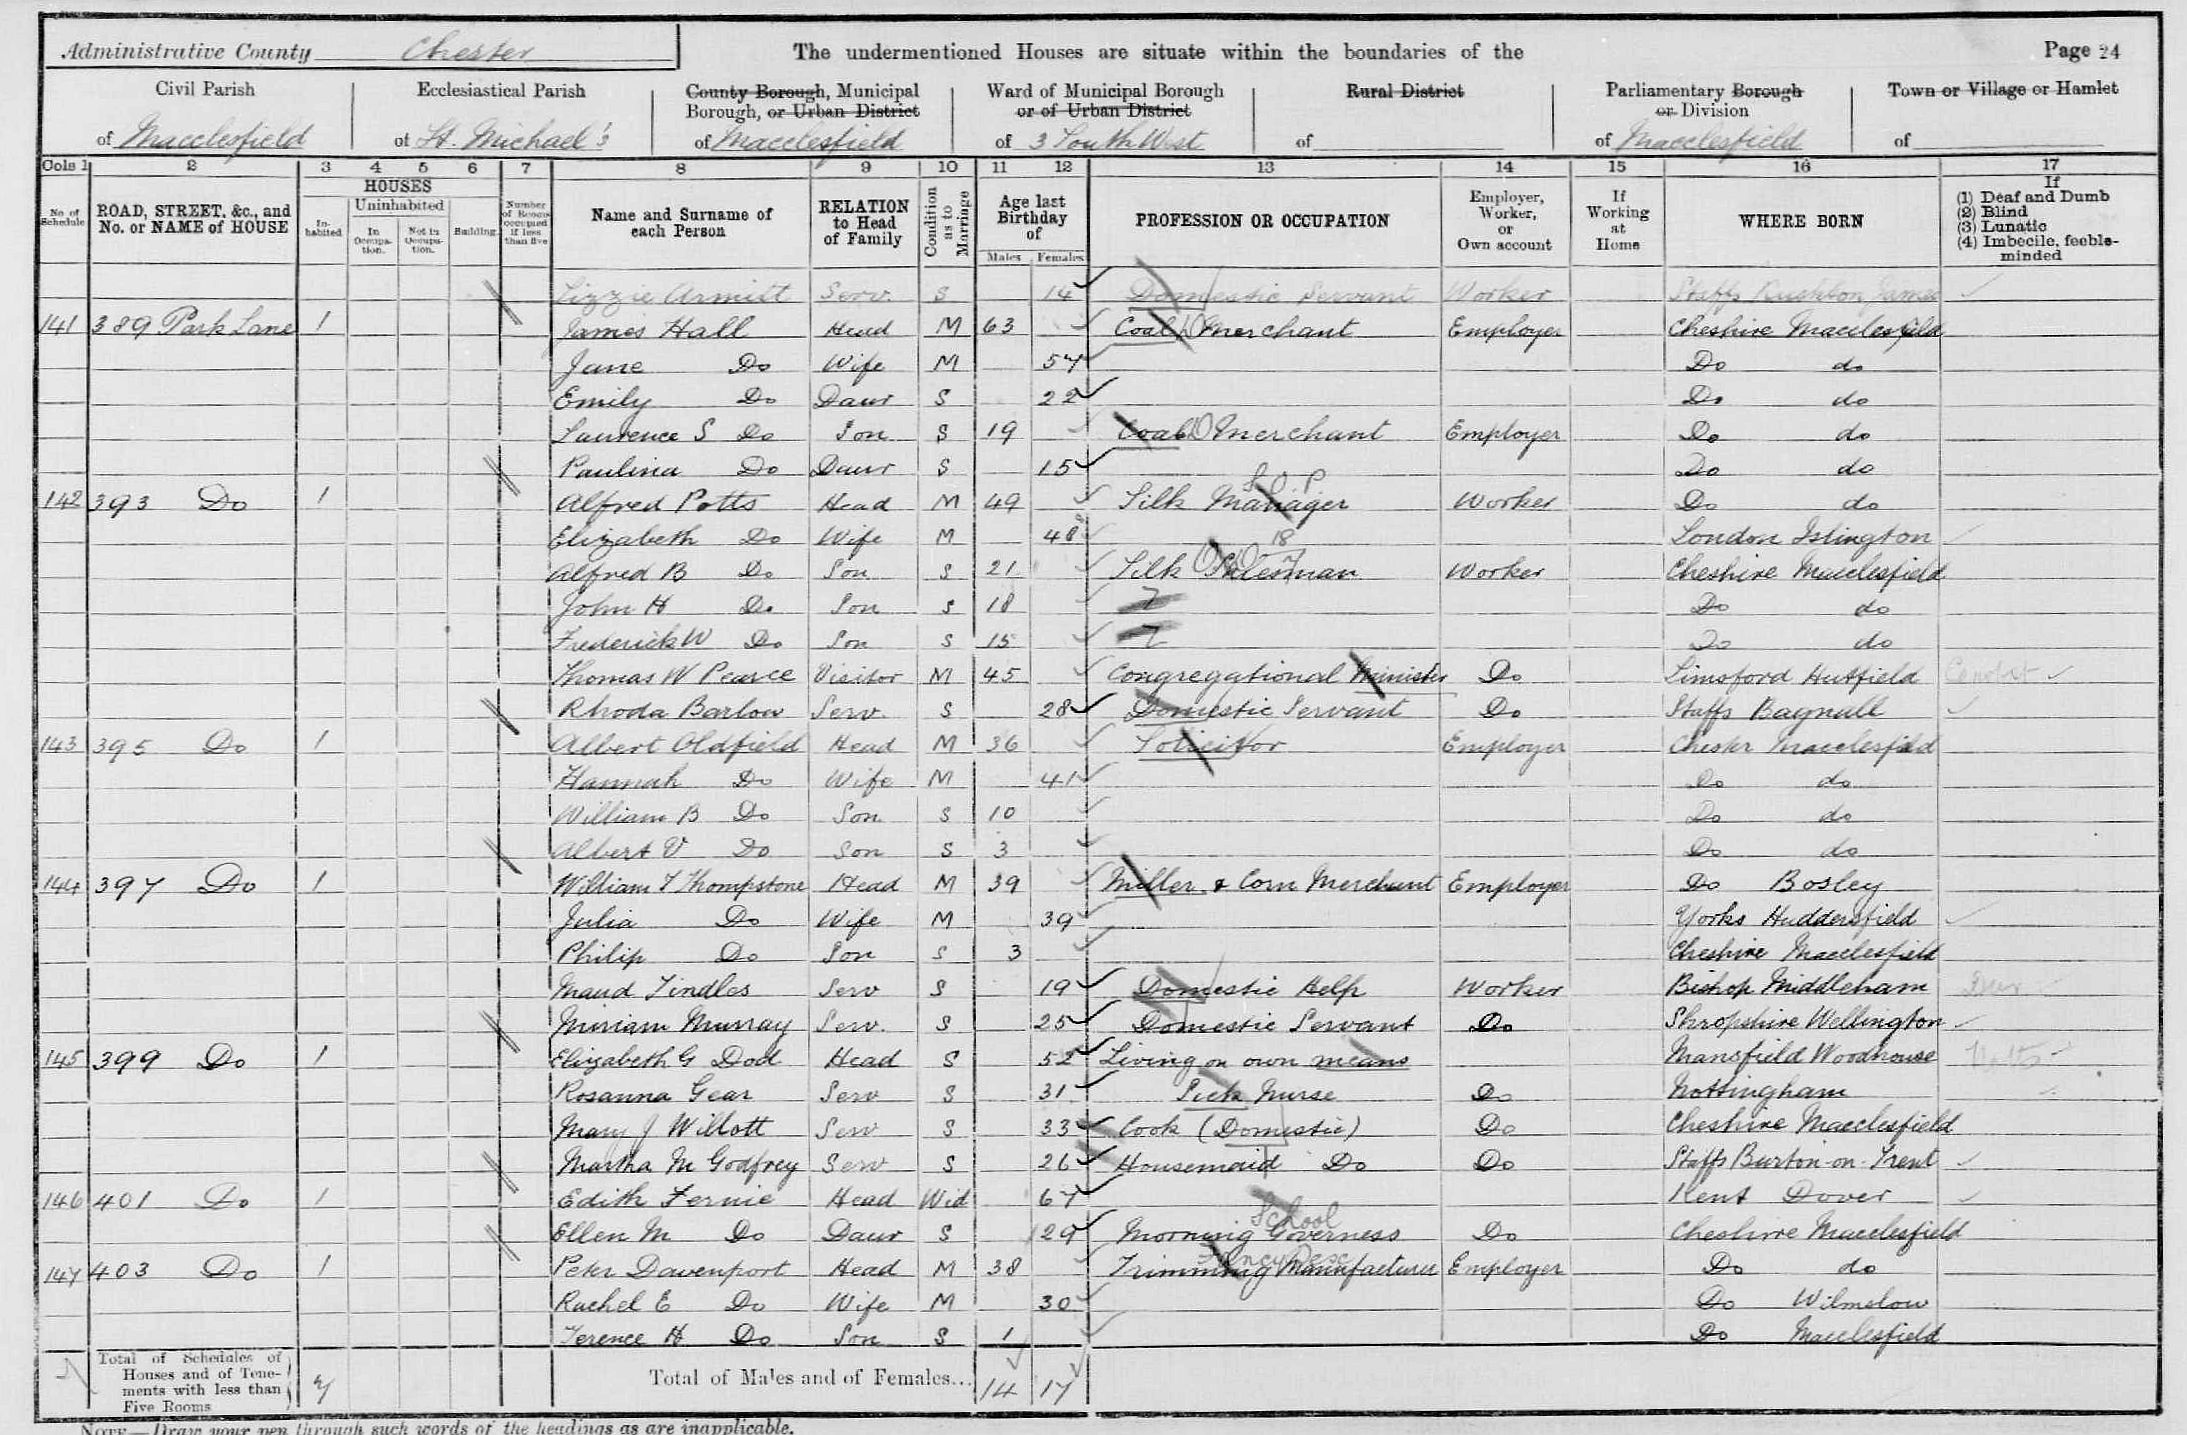 Administrative County Chester The undermentioned Houses are situate within the boundaries of the Page 24
Civil Parish of Macclesfield
Ecclesiastical Parish of St. Michael's
County Borough, Municipal Borough, or Urban District of Macclesfield
Ward of Municipal Borough or of Urban District of 3 South West
Rural District of
Parliamentary Borough or Division of Macclesfield
Town or Village or Hamlet of
Cols 1 2 3 4 5 6 7 8 9 10 11 12 13 14 15 16 17
No. of Schedule
ROAD, STREET, &c., and No. or NAME of HOUSE
HOUSES
Inhabited
Uninhabited
In Occupation.
Not in Occupation.
Building.
Number of Rooms occupied if less than five
Name and Surname of each Person
RELATION to Head of Family
Condition as to Marriage
Age last Birthday of
Males Females
PROFESSION OR OCCUPATION
Employer, Worker, or Own account
If Working at Home
WHERE BORN
If
(1) Deaf and Dumb
(2) Blind
(3) Lunatic
(4) Imbecile, feeble-minded
Lizzie Armitt Serv. S 14 Domestic Servant Worker Staffs Rushton James
141 389 Park Lane 1 James Hall Head M 63 Coal Merchant Employer Cheshire Macclesfield
Jane Do Wife M 57 Do do
Emily Do Daur S 22 Do do
Laurence S Do Son S 19 Coal Merchant Employer Do do
Paulina Do Daur S 15 Do do
142 393 Do 1 Alfred Potts Head M 49 Silk Manager Worker Do do
Elizabeth Do Wife M 48 London Islington
Alfred B Do Son S 21 Silk Salesman Worker Cheshire Macclesfield
John H Do Son S 18 Do do
Frederick W Do Son S 15 Do do
Thomas W Pearce Visitor M 45 Congregational Minister Do
Rhoda Barlow Serv. S 28 Domestic Servant Do Staffs Bagnall
143 395 Do 1 Albert Oldfield Head M 36 Solicitor Employer Chester Macclesfield
Hannah Do Wife M 41 Do do
William B Do Son S 10 Do do
Albert V Do Son S 3 Do do
144 397 Do 1 William T Thompstone Head M 39 Miller & Corn Merchant Employer Do Bosley
Julia Do Wife M 39 Yorks Huddersfield
Philip Do Son S 3 Cheshire Macclesfield
Maud Tindles Serv S 19 Domestic Help Worker Bishop Middleham Dur
Miriam Murray Serv. S 25 Domestic Servant Do Shropshire Wellington
145 399 Do 1 Elizabeth G Dod Head S 52 Living on own means Mansfield Woodhouse Notts
Rosanna Gear Serv S 31 Sick Nurse Do Nottingham
Mary J Willott Serv S 33 Cook (Domestic) Do Cheshire Macclesfield
Martha M Godfrey Serv S 26 Housemaid Do Do Staffs Burton-on-Trent
146 401 Do 1 Edith Fernie Head Wid 67 Kent Dover
School
Ellen M Do Daur S 29 Morning Governess Do Cheshire Macclesfield
147 403 Do 1 Peter Davenport Head M 38 Trimming Manufacturer Employer Do do
Rachel E Do Wife M 30 Do Wilmslow
Terence H Do Son S 1 Do Macclesfield
Total of Schedules of Houses and of Tenements with less than Five Rooms 7 Total of Males and of Females... 14 17
NOTE—Draw your pen through such words of the headings as are inapplicable.